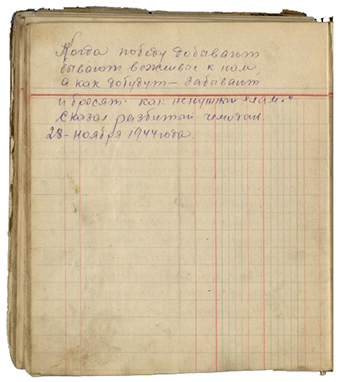 Когда победу добывают
бывают вежливее к нам,
а как добудут – забывают
и бросят как ненужный хлам."
Сказал разбитый чемодан.
28-ноября 1944 года.